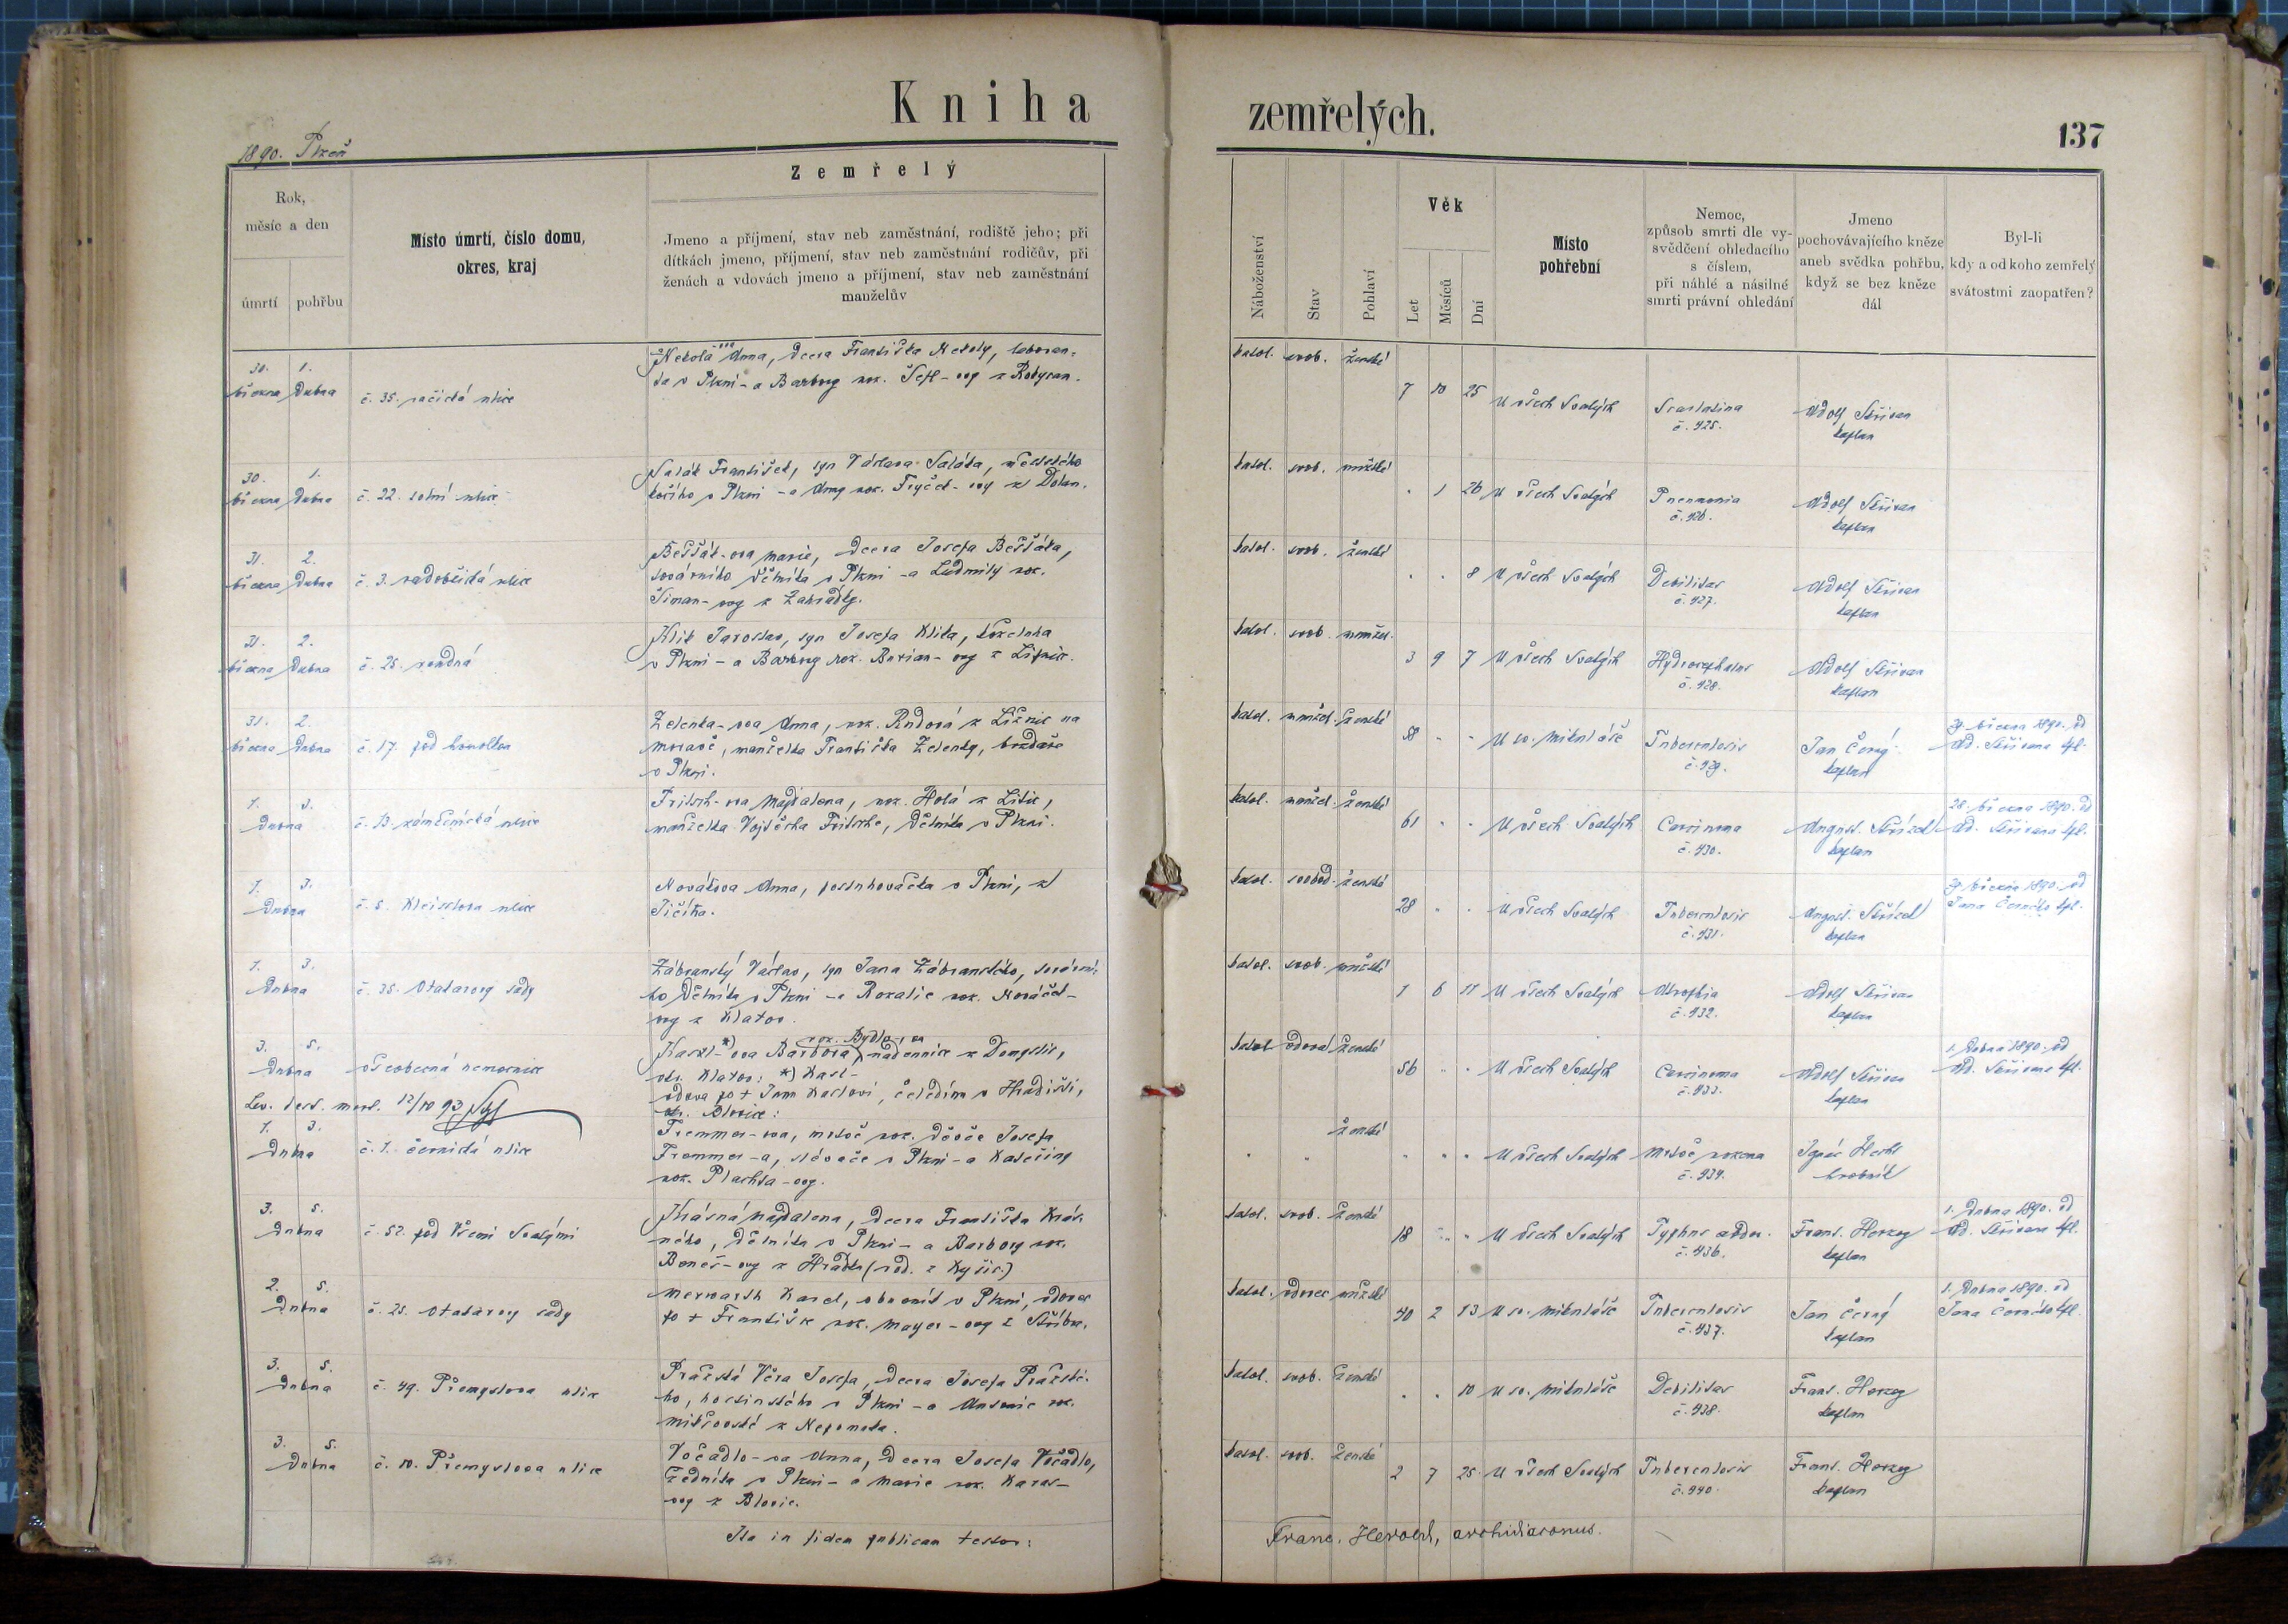 Kniha
zemřelých.
137
1890. Plzeň
Zemřelý
Rok,
měsíc a den
úmrtí
pohřbu
Místo úmrtí, číslo domu,
okres, kraj
Jmeno a příjmení, stav neb zaměstnání, rodiště jeho; při
dítkách jmeno, příjmení, stav neb zaměstnání rodičův, při
ženách a vdovách jmeno a příjmení, stav neb zaměstnání
manželův
Náboženství
Stav
Pohlaví
Věk
Let
Měsíců
Dní
Místo
pohřební
Nemoc,
způsob smrti dle vy-
svědčení ohledacího
s číslem,
při náhlé a násilné
smrti právní ohledání
Jmeno
pochovávajícího kněze
aneb svědka pohřbu,
když se bez kněze
dál
Byl-li
kdy a od koho zemřelý
svátostmi zaopatřen?
30. 1.
března Dubna
č. 35. ulice
Nekola-ova Anna, dcera Františka Nekoly, laboran-
ta v Plzni - a Barbory roz. - ovy z Rokycan.
katol. svob. ženské
7 10 25
U všech Svatých
Scarlatina
č. 425.
Adolf Skřivan
kaplan
30. 1.
března Dubna
č. 22. solní ulice
Salák František, syn Václava Saláka, městského
kočího v Plzni - a Anny roz. - ovy z Dolan.
katol. svob. mužské
" 1 26
U všech Svatých
Pneumonia
č. 426.
Adolf Skřivan
kaplan
31. 2.
března Dubna
č. 3. radobčická ulice
Beššák-ova Marie, dcera Josefa Beššáka,
továrního dělníka v Plzni - a Ludmily roz.
Šiman-ovy z Zahrádky.
katol. svob. ženské
" " 8
U všech Svatých
Debilitas
č. 427.
Adolf Skřivan
kaplan
31. 2.
března Dubna
č. 25.
Klik Jaroslav, syn Josefa Klika, koželuha
v Plzni - a Barbory roz. Burian-ovy z
katol. svob. mužsk.
3 9 7
U všech Svatých
Hydrocephalus
č. 428.
Adolf Skřivan
kaplan
31. 2.
března Dubna
č. 17. pod
Zelenka-ova Anna, roz. Rudová z na
Moravě, manželka Františka Zelenky,
v Plzni.
katol. manžel. ženské
58 " "
U sv. Mikuláše
Tuberculosis
č. 429.
Jan Černý
kaplan
března 1890. od
Ad. Skřivana kpl.
1. 3.
Dubna
č. 13. zámečnická ulice
Fritsch-ova Magdalena, roz. Holá z Litic,
manželka Vojtěcha Fritsche, dělníka v Plzni.
katol. manžel. ženské
61 " "
U všech Svatých
Carcinoma
č. 430.
August. Střízek
kaplan
28. března 1890. od
Ad. Skřivana kpl.
1. 3.
Dubna
č. 5. Kleisslova ulice
Novákova Anna, posluhovačka v Plzni, z
Jičína.
katol. svobod. ženské
28 " "
U všech Svatých
Tuberculosis
č. 431.
August. Střízek
kaplan
března 1890. od
Jana Černého kpl.
1. 3.
Dubna
č. 35. Otakarovy sady
Zábranský Václav, syn Jana Zábranského, tovární-
ho dělníka v Plzni - a Rozalie roz. Nováček-
ovy z Klatov.
katol. svob. mužské
1 6 11
U všech Svatých
Atrophia
č. 432.
Adolf Skřivan
kaplan
3. 5.
Dubna
všeobecná nemocnice
roz. Bydlo-va
-ova Barbora, nádennice z Domyslic,
okr. Klatov: *) Karl-
vdova po + Janu Karlovi, čeledínu v Hradišti,
okr. Blovice:
12/10 93
katol. vdova ženské
56 " "
U všech Svatých
Carcinoma
č. 433.
Adolf Skřivan
kaplan
1. Dubna 1890. od
Ad. Skřivana kpl.
1. 3.
Dubna
č. 1. černická ulice
Fremmer-ova, mrtvě roz. děvče Josefa
Fremmer-a, slévače v Plzni - a Kateřiny
roz. Plachta-ovy.
ženské
U všech Svatých
Mrtvě rozena
č. 434.
Ignác Herbl
hrobník
3. 5.
Dubna
č. 52. pod Všemi Svatými
Krásná Magdalena, dcera Františka Krás-
ného, dělníka v Plzni - a Barbory roz.
Beneš-ovy z Hrádku (rod. z Kyšic.)
katol. svob. ženské
18 " "
U všech Svatých
Typhus abdom.
č. 436.
Frant. Herzog
kaplan
1. Dubna 1890. od
Ad. Skřivana kpl.
2. 5.
Dubna
č. 25. Otakarovy sady
Merwarth Karel, obuvník v Plzni, vdovec
po + Františce roz. Mayer-ovy z Stříbra.
katol. vdovec mužské
40 2 13
U sv. Mikuláše
Tuberculosis
č. 437.
Jan Černý
kaplan
1. Dubna 1890. od
Jana Černého kpl.
3. 5.
Dubna
č. 49. Přemyslova ulice
Pražská Věra Josefa, dcera Josefa Pražské-
ho, hostinského v Plzni - a Antonie roz.
Mitčovské z Nepomuka.
katol. svob. ženské
" " 10
U sv. Mikuláše
Debilitas
č. 438.
Frant. Herzog
kaplan
3. 5.
Dubna
č. 10. Přemyslova ulice
Vočadlo-va Anna, dcera Josefa Vočadlo,
zedníka v Plzni - a Marie roz. Karas-
ovy z Blovic.
katol. svob. ženské
2 7 25
U všech Svatých
Tuberculosis
č. 440.
Frant. Herzog
kaplan
Ita in fidem publicam testor:
Franc. Herold, archidiaconus.